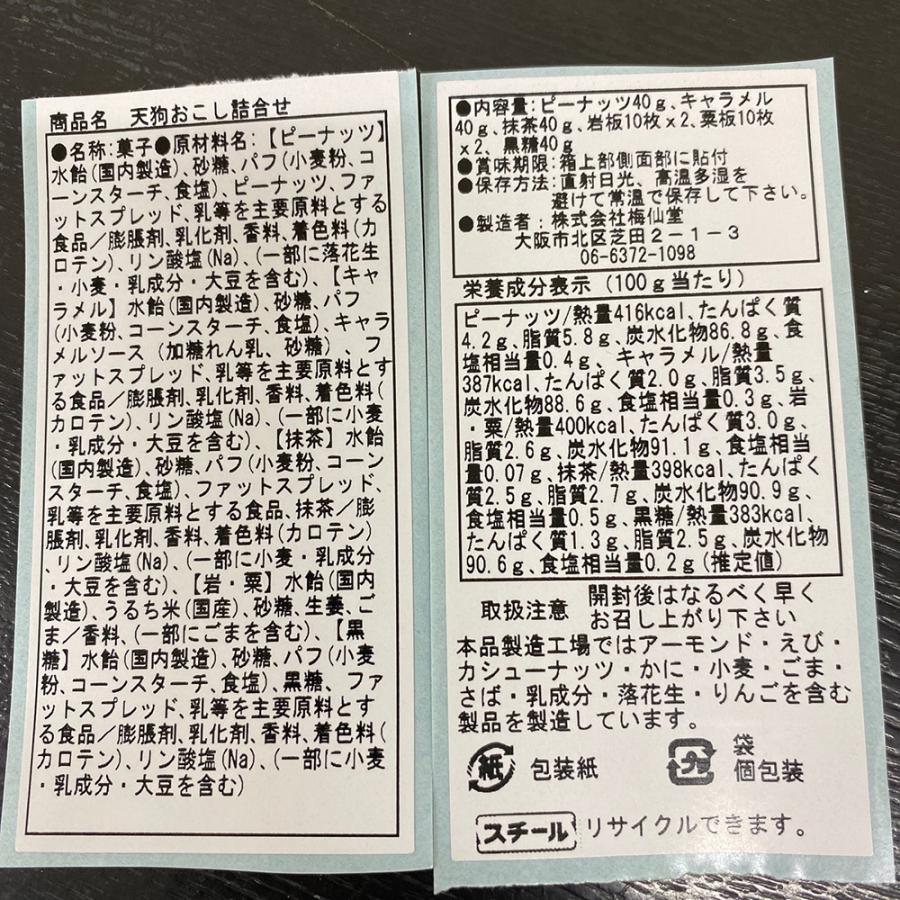 商品名 天狗おこし詰合せ
●名称:菓子●原材料名:【ピーナッツ】
水飴(国内製造)、砂糖、パフ(小麦粉、コ
ーンスターチ、食塩)、ピーナッツ、ファ
ットスプレッド、乳等を主要原料とする
食品/膨脹剤、乳化剤、香料、着色料(カ
ロテン)、リン酸塩(Na)、(一部に落花生
・小麦・乳成分・大豆を含む)、【キャ
ラメル】水飴(国内製造)、砂糖、パフ
(小麦粉、コーンスターチ、食塩)、キャラ
メルソース(加糖れん乳、砂糖)、フ
ァットスプレッド、乳等を主要原料とす
る食品/膨脹剤、乳化剤、香料、着色料(
カロテン)、リン酸塩(Na)、(一部に小麦
・乳成分・大豆を含む)、【抹茶】水飴
(国内製造)、砂糖、パフ(小麦粉、コーン
スターチ、食塩)、ファットスプレッド、
乳等を主要原料とする食品、抹茶/膨
脹剤、乳化剤、香料、着色料(カロテン)
、リン酸塩(Na)、(一部に小麦・乳成分
・大豆を含む)、【岩・粟】水飴(国内
製造)、うるち米(国産)、砂糖、生姜、ご
ま/香料、(一部にごまを含む)、【黒
糖】水飴(国内製造)、砂糖、パフ(小麦
粉、コーンスターチ、食塩)、黒糖、ファ
ットスプレッド、乳等を主要原料とす
る食品/膨脹剤、乳化剤、香料、着色料(
カロテン)、リン酸塩(Na)、(一部に小麦
・乳成分・大豆を含む)
●内容量:ピーナッツ40g、キャラメル
40g、抹茶40g、岩板10枚x2、粟板10枚
x2、黒糖40g
●賞味期限:箱上部側面部に貼付
●保存方法:直射日光、高温多湿を
避けて常温で保存して下さい。
●製造者:株式会社梅仙堂
大阪市北区芝田2-1-3
06-6372-1098
栄養成分表示(100g当たり)
ピーナッツ/熱量416kcal、たんぱく質
4.2g、脂質5.8g、炭水化物86.8g、食
塩相当量0.4g、キャラメル/熱量
387kcal、たんぱく質2.0g、脂質3.5g、
炭水化物88.6g、食塩相当量0.3g、岩
・粟/熱量400kcal、たんぱく質3.0g、
脂質2.6g、炭水化物91.1g、食塩相当
量0.07g、抹茶/熱量398kcal、たんぱく
質2.5g、脂質2.7g、炭水化物90.9g、
食塩相当量0.5g、黒糖/熱量383kcal、
たんぱく質1.3g、脂質2.5g、炭水化物
90.6g、食塩相当量0.2g(推定値)
取扱注意 開封後はなるべく早く
お召し上がり下さい
本品製造工場ではアーモンド・えび・
カシューナッツ・かに・小麦・ごま・
さば・乳成分・落花生・りんごを含む
製品を製造しています。
紙 包装紙 プラ 袋
個包装
スチール リサイクルできます。